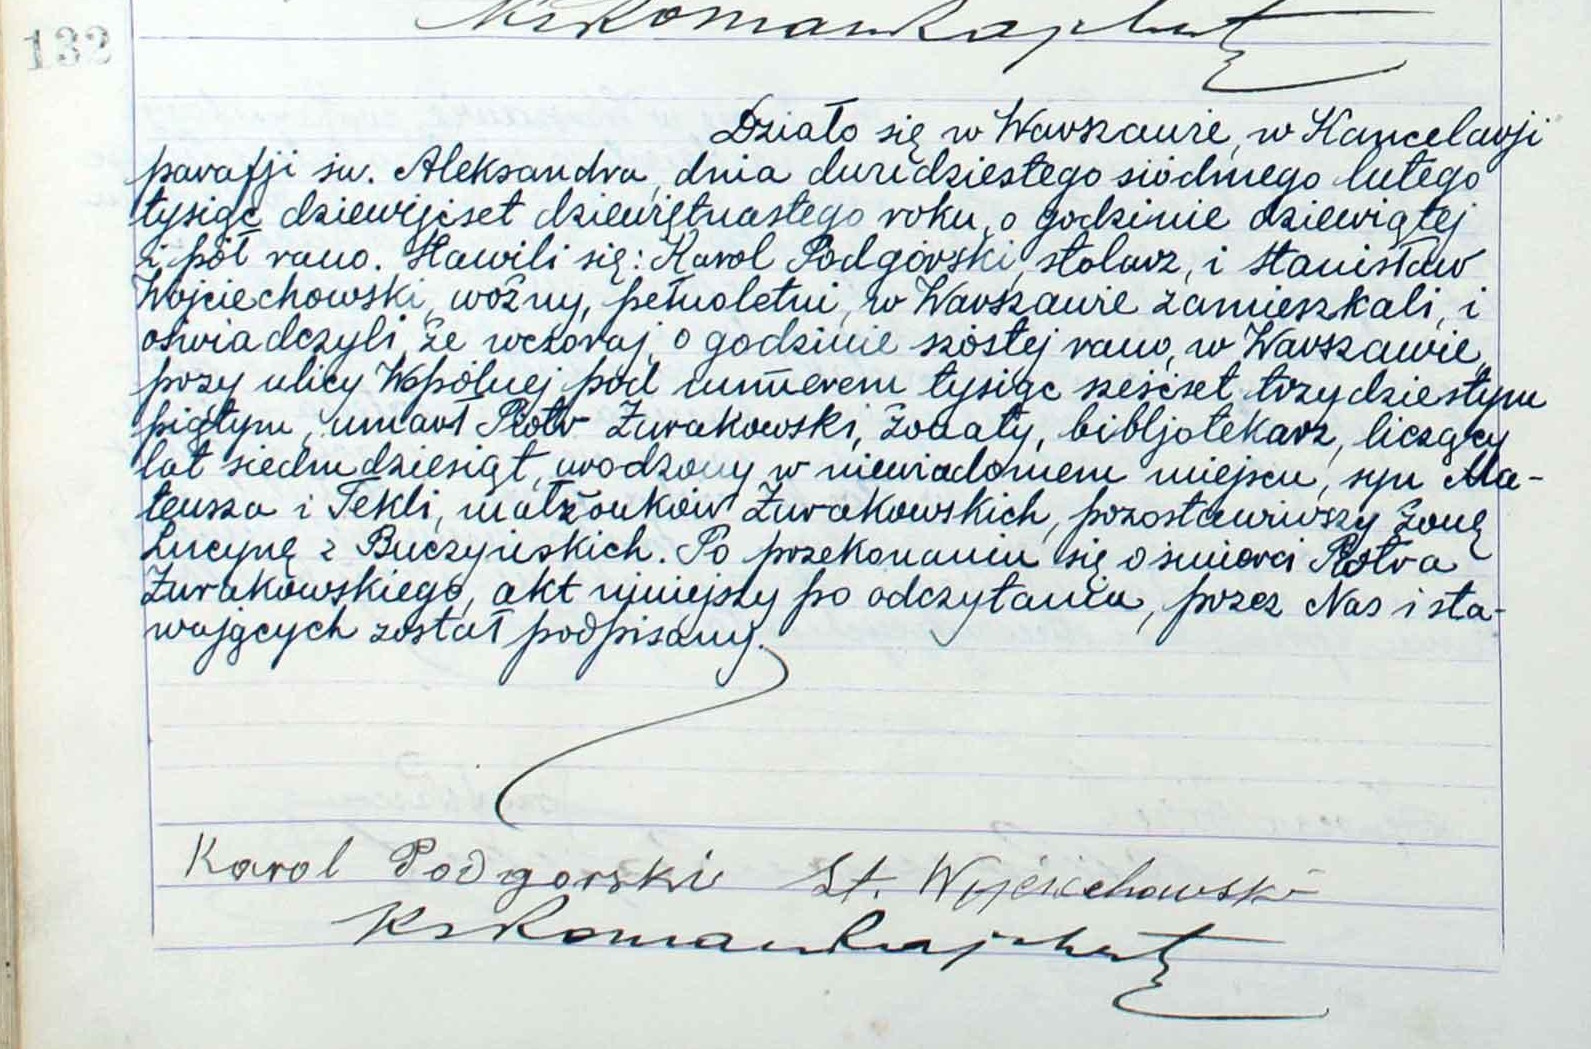 Ks Roman Rajchert
132
Działo się w Warszawie, w Kancelarji
parafji św. Aleksandra, dnia dwudziestego siódmego lutego
tysiąc dziewięćset dziewiętnastego roku, o godzinie dziewiątej
i pół rano. Stawili się: Karol Podgórski, stolarz, i Stanisław
Wojciechowski, woźny, pełnoletni, w Warszawie zamieszkali, i
oświadczyli, że wczoraj, o godzinie szóstej rano, w Warszawie,
przy ulicy Wspólnej pod numerem tysiąc sześćset trzydziestym
piątym, umarł Piotr Żurakowski, żonaty, bibljotekarz, liczący
lat siedmdziesiąt, urodzony w niewiadomem miejscu, syn Ma-
teusza i Tekli, małżonków Żurakowskich, pozostawiwszy żonę
Lucynę z Buczyńskich. Po przekonaniu się o śmierci Piotra
Żurakowskiego, akt niniejszy po odczytaniu, przez Nas i sta-
wających został podpisany.
Karol Podgorski St. Wojciechowski
Ks Roman Rajchert